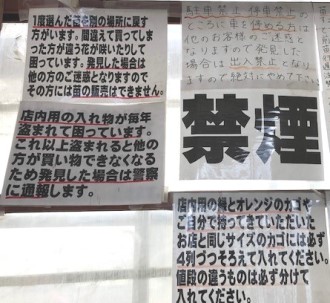 1度選んだ苗を別の場所に戻す
方がいます。間違えて買ってしま
った方が違う花が咲いたりして
困っています。発見した場合は
他の方のご迷惑となりますので
その方には苗の販売はできません。
店内用の入れ物が毎年
盗まれて困っています。
これ以上盗まれると他の
方が買い物できなくなる
ため発見した場合は警察
に通報します。
駐車禁止 停車禁止の
ところに車を停める方は
他のお客様のご迷惑と
なりますので発見した
場合は出入禁止となり
ますので絶対にやめて下さい
禁煙
店内用の鍋とオレンジのカゴや
ご自分で持ってきていただいた
お店と同じサイズのカゴには必ず
4列づつそろえて入れてください。
値段の違うものは必ず分けて
入れてください。